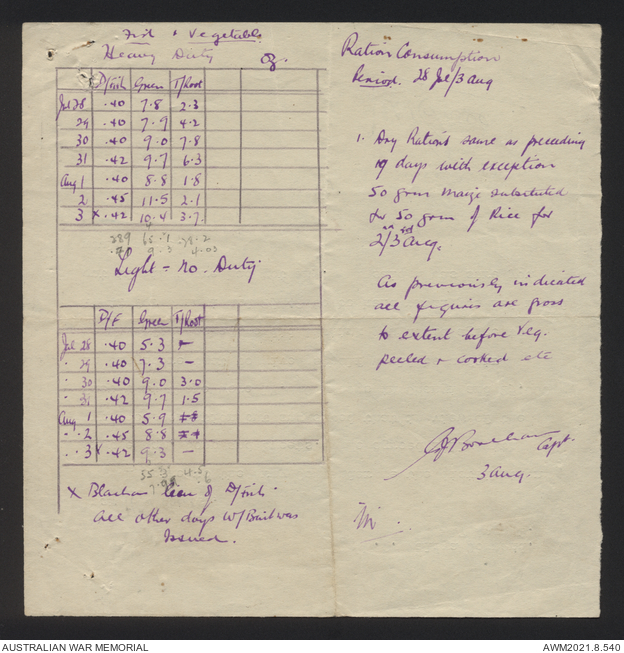 Fish & Vegetable
Heavy Duty Oz.
D/Fish Green T/Root
Jul 28 .40 7.8 2.3
29 .40 7.9 4.2
30 .40 9.0 7.8
31 .42 9.7 6.3
Aug 1 .40 8.8 1.8
2 .45 11.5 2.1
3 x .42 10.4 3.7
289 65.1 28.2
.40 9.3 4.03
Light = no. Duty
D/F Green T/Root
Jul 28 .40 5.3 -
" 29 .40 7.3 -
" 30 .40 9.0 3.0
" 31 .42 9.7 1.5
Aug 1 .40 5.9
" 2 .45 8.8
" 3 x .42 9.3 -
x Blachan lieu of D/Fish.
All other days W/Bait was
Issued.
Ration Consumption
Period. 28 Jul/3 Aug
1. Dry Rations same as preceding
19 days with exception
50 grm maize substituted
for 50 grm of Rice for
2nd/3rd Aug.
As previously indicated
all figures are gross
to extent before veg.
peeled & cooked etc
Capt.
3 Aug.
AUSTRALIAN WAR MEMORIAL
AWM2021.8.540